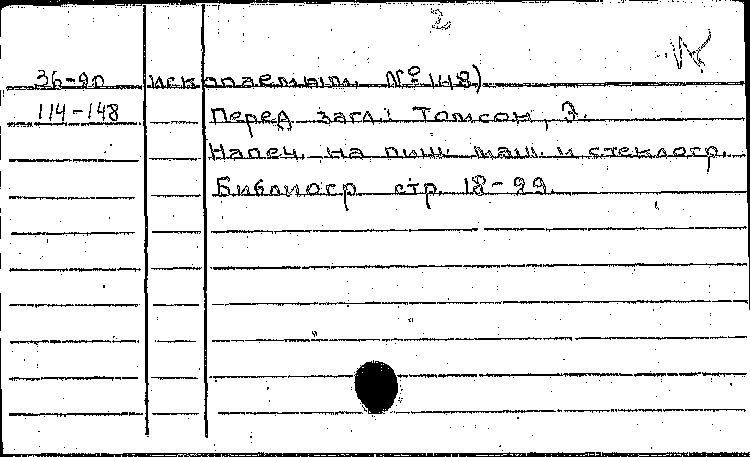 2
36-90 ископаемым. № 148)
114-148 Перед загл.: Томсон, Э.
Напеч. на пиш. маш. и стеклогр.
Библиогр стр. 18-99.